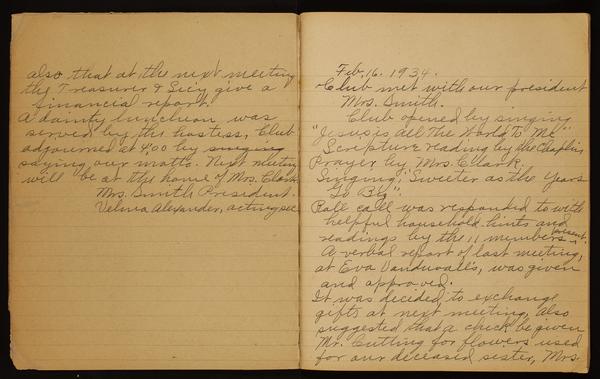 also that at the next meeting
the Treasurer & Secy give a
financial report.
A dainty luncheon was
served by the hostess, Club
adjourned at 4:00 by singing
saying our motto. Next meeting
will be at the home of Mrs. Clark.
Mrs. Smith President.
Velma Alexander, acting sec.
Feb. 16. 1934.
Club met with our president
Mrs. Smith.
Club opened by singing
"Jesus is All The World To Me"
Scripture reading by the Chaplin
Prayer by Mrs. Clark.
Singing, "Sweeter as the Years
Go By".
Roll call was responded to with
helpful household hints and
readings by the 11 members present.
A verbal report of last meeting,
at Eva Vanduvall's, was given
and approved.
It was decided to exchange
gifts at next meeting, Also
suggested that a check be given
Mr. Cutting for flowers used
for our deceased sister, Mrs.